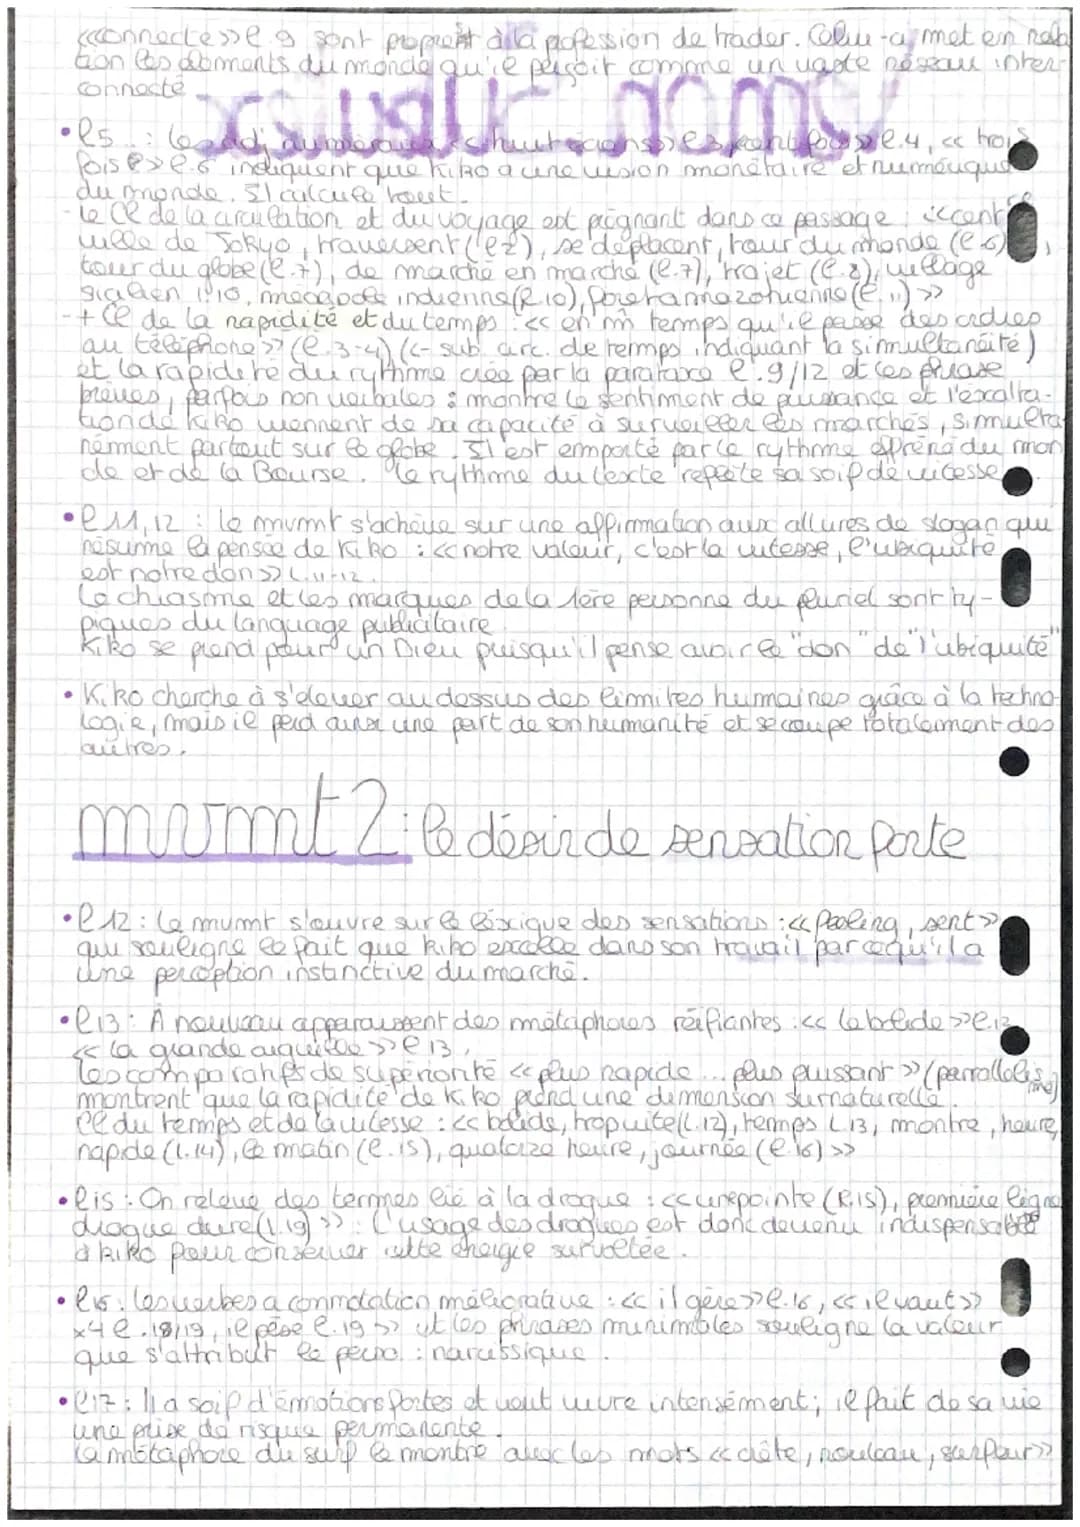 <<connecte>> l.9 sont propres à la profession de trader. Celui-ci met en rela
tion les éléments du monde qu'il perçoit comme un vaste réseau inter-
connecté
• l5 : les adj numéraux << huit écrans >> l.3, cent fois >> l.4, << trois
fois >> l.6 indiquent que Kiko a une vision monétaire et numérique
du monde. Il calcule tout.
- le CL de la circulation et du voyage est prégnant dans ce passage : <<
ville de Tokyo, traversent (l2), se déplacent, tour du monde (l.6),
tour du globe (l.7), de marché en marché (l.7), trajet (l.8), village
sicilien l.10, mégapole indienne (l.10), foret amazonienne (l.11) >>
- + CL de la rapidité et du temps : << en m̂ temps qu'il passe des ordres
au téléphone >> (l.3-4) (<- sub. circ. de temps indiquant la simultanéité)
et la rapidité du rythme créé par la parataxe l.9/12 et les phrase
brèves, parfois non verbales : montre le sentiment de puissance et l'exalta-
tion de Kiko viennent de sa capacité à surveiller les marchés, simulta
nément partout sur le globe. Il est emporté par le rythme effréné du mon
de et de la Bourse. le rythme du texte reflète sa soif de vitesse.
• l11,12 : le mvmt s'achève sur une affirmation aux allures de slogan qui
résume la pensée de Kiko : << notre valeur, c'est la vitesse, l'ubiquité
est notre don >> l.11-12.
Le chiasme et les marques de la 1ère personne du pluriel sont ty-
piques du language publicitaire
Kiko se prend pour un Dieu puisqu'il pense avoir le "don" de "l'ubiquité"
• Kiko cherche à s'élever au dessus des limites humaines grâce à la techno-
logie, mais il perd aussi une part de son humanité et se coupe totalement des
autres.
mvmt 2 : le désir de sensation forte
• l12 : le mvmt s'ouvre sur le lexique des sensations : << feeling, sent >>
qui souligne le fait que Kiko excelle dans son travail parcequ'il a
une perception instinctive du marché.
• l13 : A nouveau apparaissent des métaphores réifiantes : << le bolide >> l.12
<< la grande aiguille >> l13,
les comparatifs de supériorité << plus rapide ... plus puissant >> (parrallélisme)
montrent que la rapidité de Kiko prend une dimension surnaturelle.
CL du temps et de la vitesse : << bolide, trop vite (l.12), temps l.13, montre, heure,
rapide (l.14), le matin (l.15), quatorze heure, journée (l.16) >>
• l15 : On relève des termes lié à la drogue : << une pointe (l.15), première ligne
drogue dure (l.19) >> : L'usage des drogues est donc devenu indispensable
à Kiko pour conserver cette énergie survoltée.
• l16 : les verbes a connotation méliorative : << il gère >> l.16, << il vaut >>
x4 l.18/19, il pèse l.19 >> et les phrases minimales souligne la valeur
que s'attribut le perso. : narcissique.
• l17 : Il a soif d'émotions fortes et veut vivre intensément ; il fait de sa vie
une prise de risque permanente.
La métaphore du surf le montre avec les mots << crête, rouleau, surfeur >>